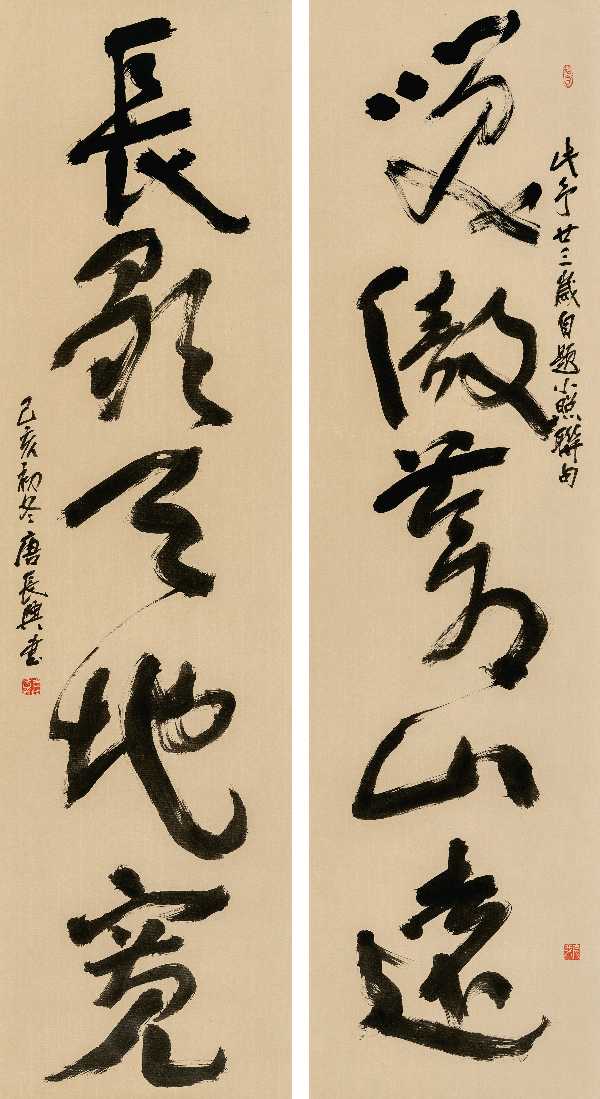 嘯傲萬山遠
此予廿三歲自題小照聯句
長歌天地寬
己亥初冬唐長興書